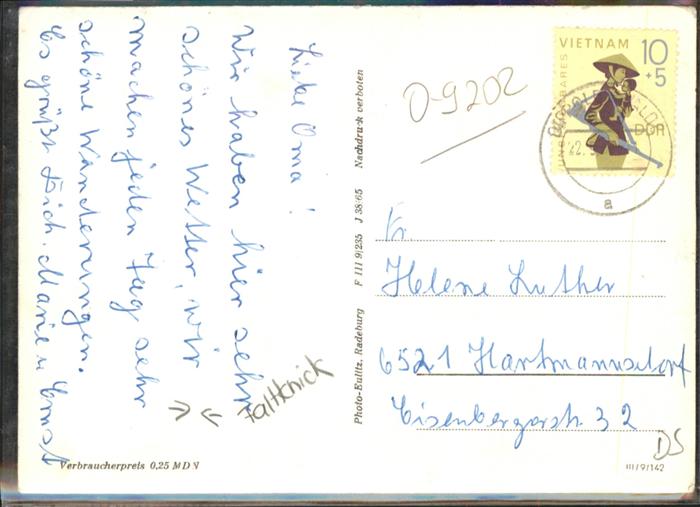 Liebe Oma!
Wir haben hier sehr
schönes Wetter, wir
machen jeden Tag sehr
schöne Wanderungen.
Es grüßt Dich Marie u Ernst
Faltknick
Verbraucherpreis 0,25 MDN
Photo-Eulitz, Radeburg F 111 9/235 J 38/65 Nachdruck verboten
0-9202
VIETNAM 10
+5
DDR
22.
a
Fr.
Helene Luther
6521 Hartmannsdorf
Eisenbergerstr. 32
DS
III/9/142